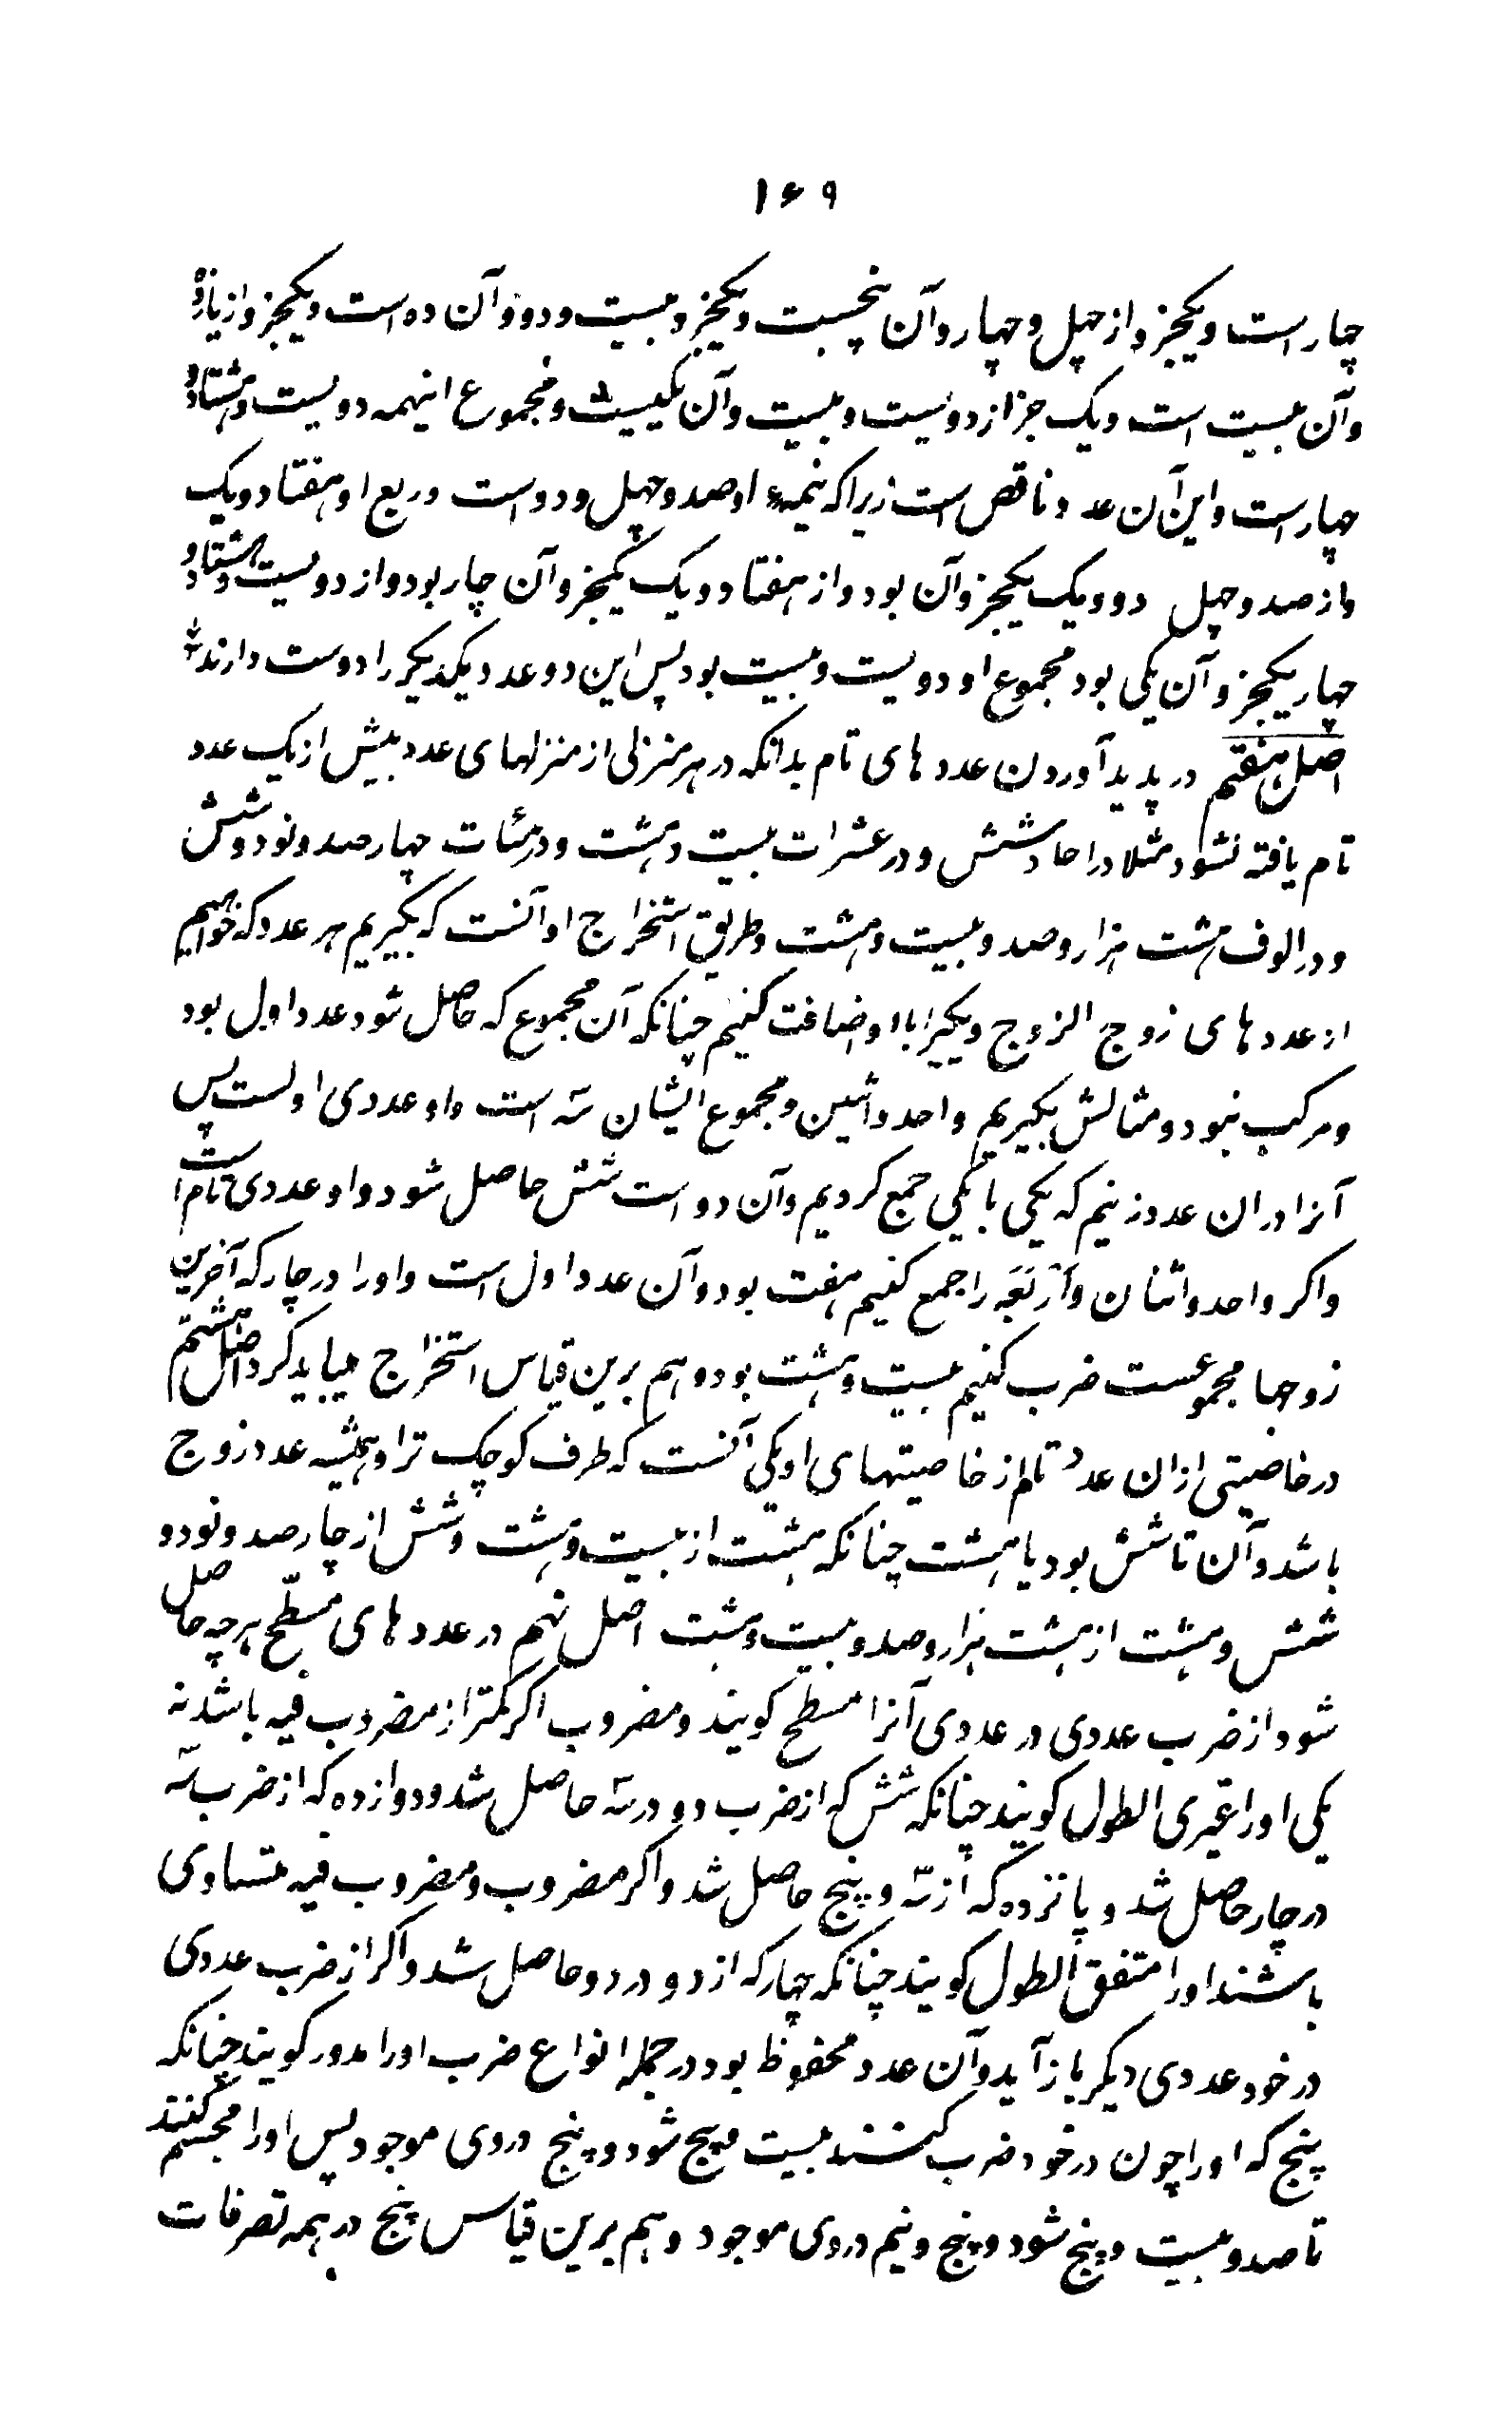 ۱۶۹
چهار است و یکجز و از چهل و چهار و آن پنجست و یکجز و بیست و دو و آن ده است و یکجز و از یازده
و آن بیست است و یک جز از دویست و بیست و آن یکیست و مجموع اینهمه دویست و هشتاد و
چهار است و این آن عدد ناقص است زیرا که نیمهٔ او صد و چهل و دو است و ربع او هفتاد و یک
و از صد و چهل دو و یک یکجز و آن بود و از هفتاد و یک یکجز و آن چار بود و از دویست و هشتاد و
چهار یکجز و آن یکی بود مجموع او دویست و بیست بود پس این دو عدد یکدیگر را دوست دارند
اصل هفتم در پدید آوردن عددهای تام بدانکه در هر منزلی از منزلهای عدد بیش از یک عدد
تام یافته نشود مثلا در احاد شش و در عشرات بیست و هشت و در مئات چهار صد و نود و شش
و در الوف هشت هزار و صد و بیست و هشت و طریق استخراج او آنست که بگیریم هر عدد که خواهیم
از عددهای زوج الزوج و یکیرا باو اضافت کنیم چنانکه آن مجموع که حاصل شود عدد اول بود
و مرکب نبود و مثالش بگیریم واحد و اثنین و مجموع ایشان سه است و او عددی اولست پس
آنرا در ان عدد زنیم که یکی با یکی جمع کردیم و آن دو است شش حاصل شود و او عددی تام است
و اگر واحد و اثنان و اربعه را جمع کنیم هفت بود و آن عدد اول است و او را در چار که آخرین
زوجها مجموعست ضرب کنیم بیست و هشت بود و هم برین قیاس استخراج میباید کرد اصل هشتم
در خاصیتی از ان عدد تام از خاصیتهای او یکی آنست که طرف کوچک تر او همیشه عدد زوج
باشد و آن تا شش بود یا هشت چنانکه هشت از بیست و هشت و شش از چار صد و نود و
شش و هشت از هشت هزار و صد و بیست و هشت اصل نهم در عددهای مسطّح هر چه حاصل
شود از ضرب عددی در عددی آنرا مسطح گویند و مضروب اگر کمتر از مضروب فیه باشد نه
یکی او را غیری الطول گویند چنانکه شش که از ضرب دو در سه حاصل شد و دوازده که از ضرب سه
در چار حاصل شد و پانزده که از سه و پنج حاصل شد و اگر مضروب و مضروب فیه متساوی
باشند او را متفق الطول گویند چنانکه چهار که از دو در دو حاصل شد و اگر از ضرب عددی
در خود عددی دیگر باز آید و آن عدد محفوظ بود در جمله انواع ضرب او را مدور گویند چنانکه
پنج که او را چون در خود ضرب کنند بیست و پنج شود و پنج در وی موجود پس او را مجسم کنند
تا صد و بیست و پنج شود و پنج و نیم در وی موجود و هم برین قیاس پنج در همه تصرفات